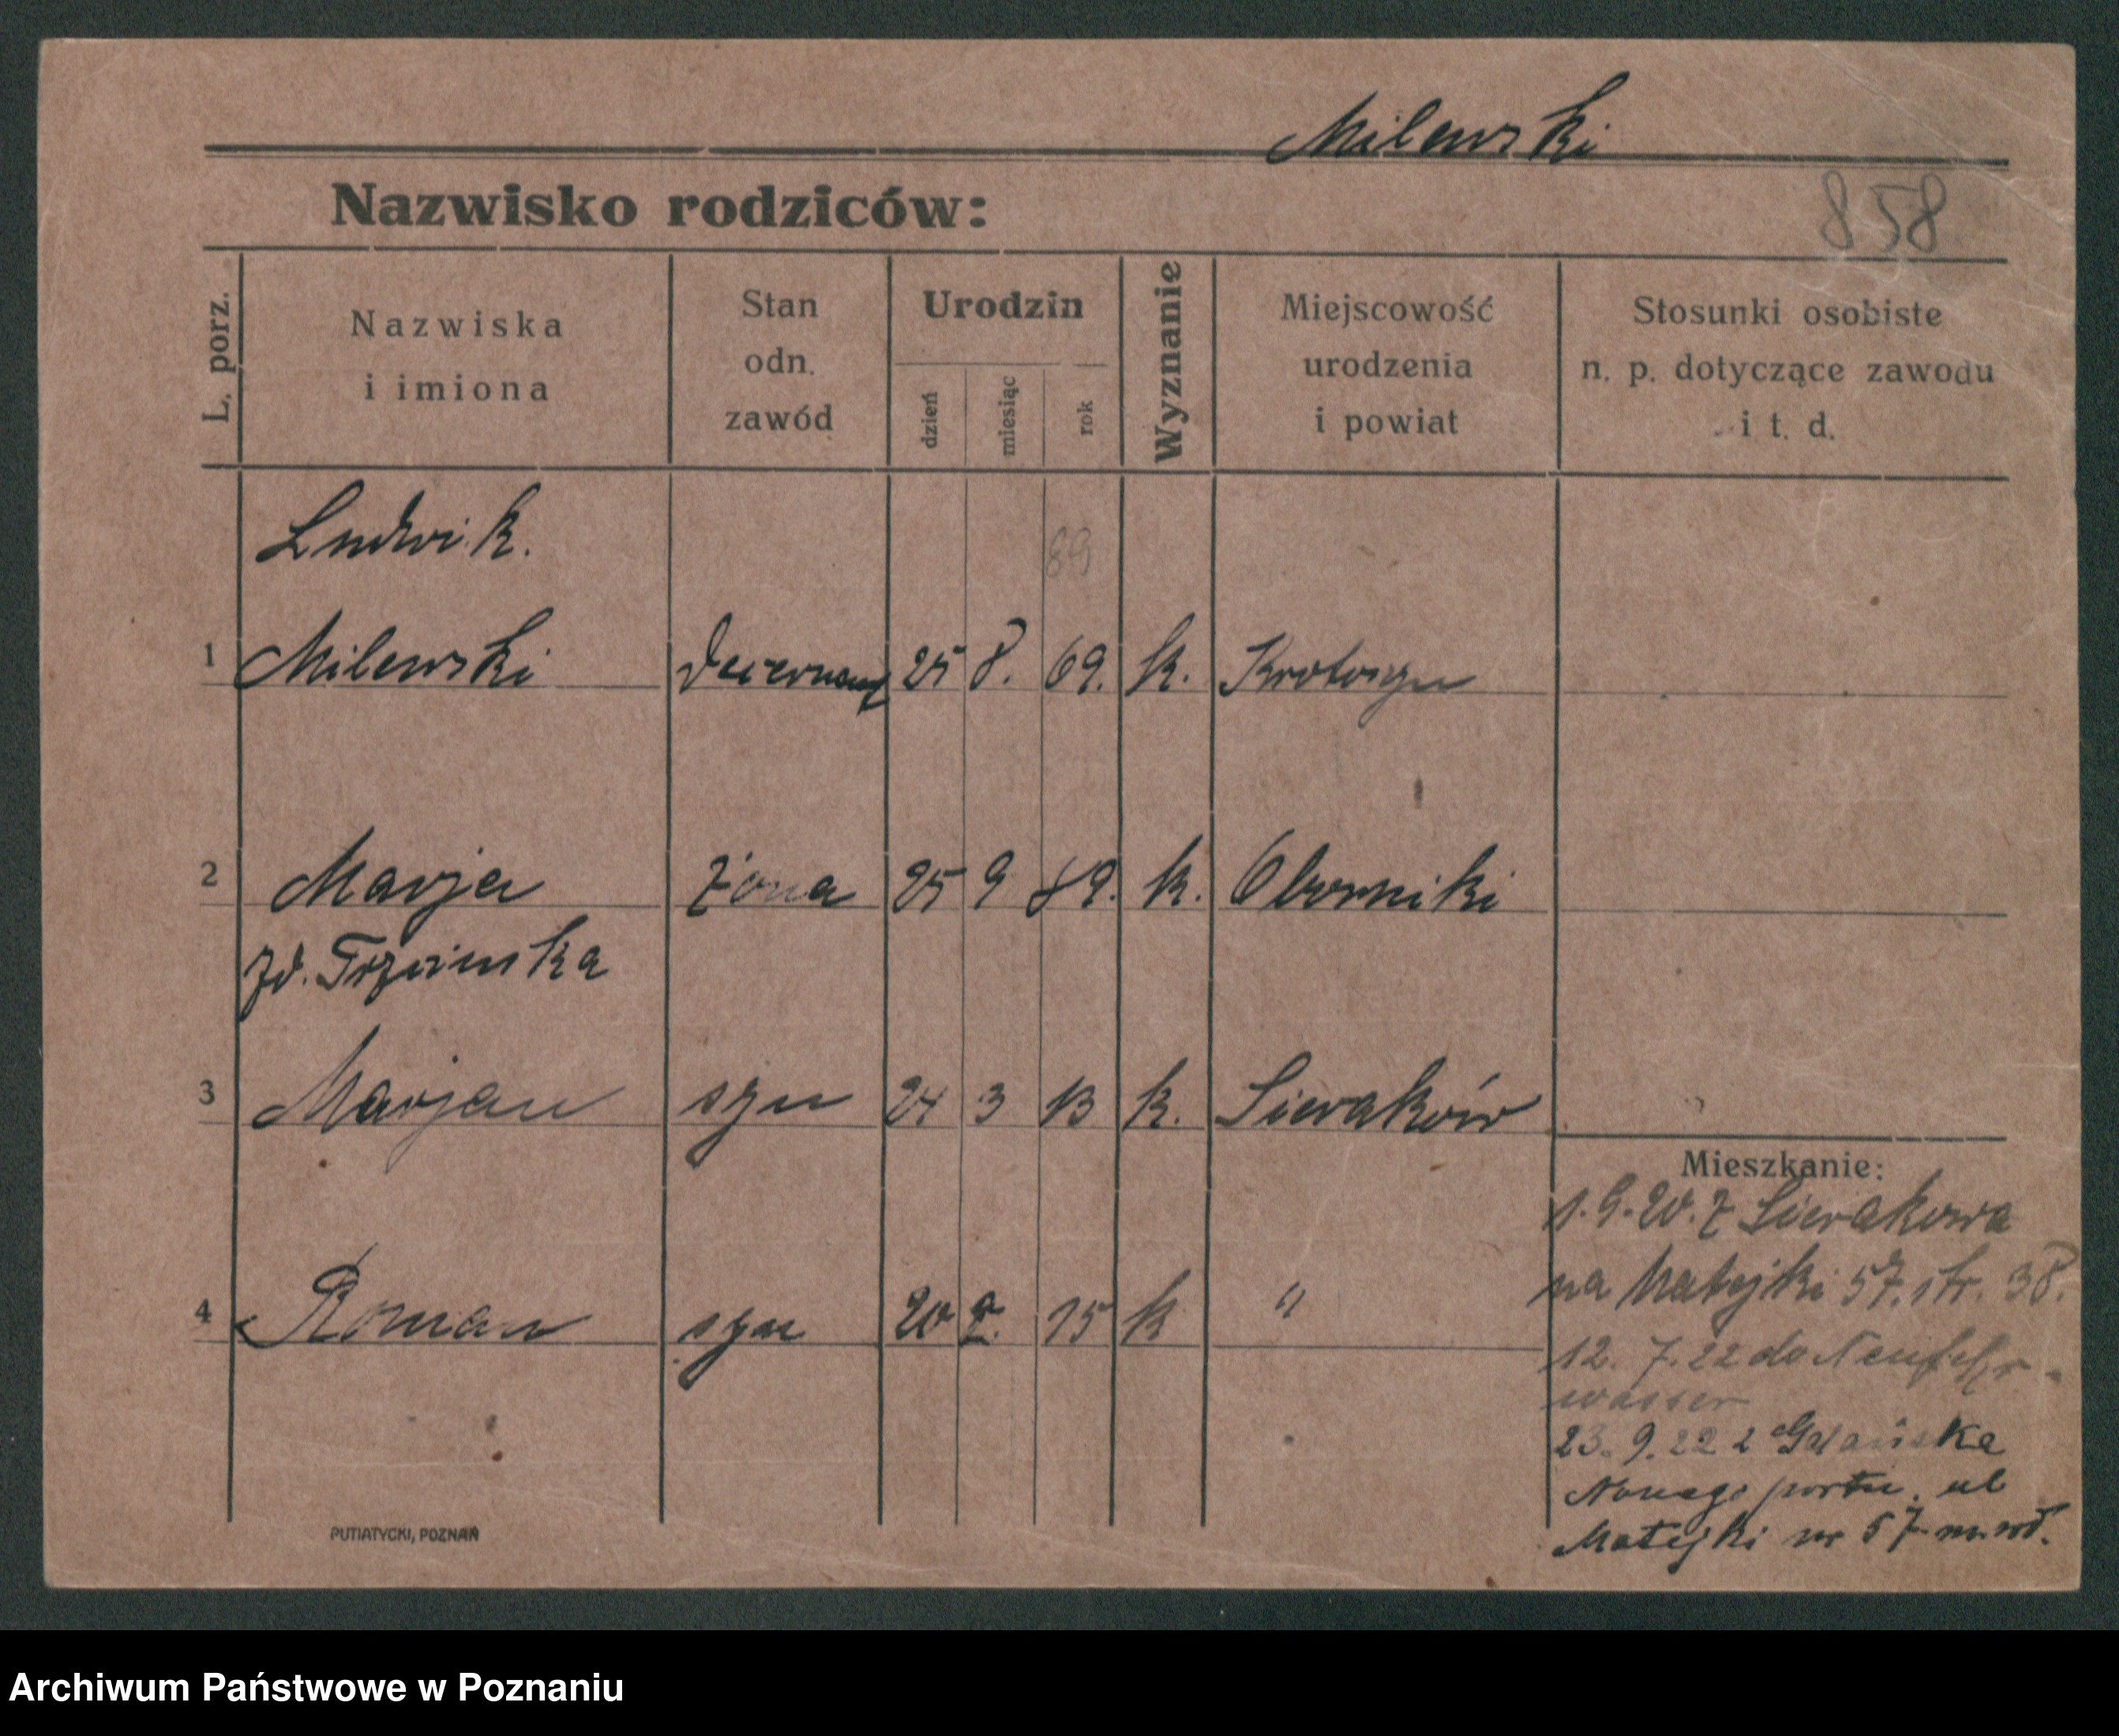 Milewski
Nazwisko rodziców:
858
L. porz.
Nazwiska
i imiona
Stan
odn.
zawód
Urodzin
dzień
miesiąc
rok
Wyznanie
Miejscowość
urodzenia
i powiat
Stosunki osobiste
n. p. dotyczące zawodu
i t. d.
Ludwik.
89
1 Milewski 25 8. 69. k. Krotoszyn
2 Marja żona 25 9 89. k. Oborniki
zd. Trzcińska
3 Marjan syn 24 3 13 k. Sieraków
Mieszkanie:
1.9.20. z Sierakowa
na Matejki 57. str. 38.
4 Roman syn 20 2. 15 k "
12. 7. 22 do Neufahr-
wasser
23. 9. 22 z Gdańska
Nowego portu. ul
Matejki nr 57
PUTIATYCKI, POZNAŃ
Archiwum Państwowe w Poznaniu